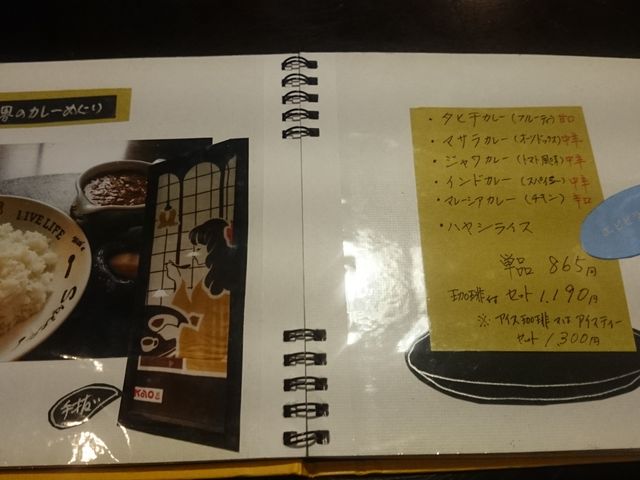 界のカレーめぐり
LIVE LIFE
KAO's
・タヒチカレー(フルーティ)甘口
・マサラカレー(オーソドックス)中辛
・ジャワカレー(トマト風味)中辛
・インドカレー(スパイシー)中辛
・マレーシアカレー(チキン)辛口
・ハヤシライス
単品 865円
珈琲付 セット 1,190円
※アイス珈琲又はアイスティー
セット 1,300円